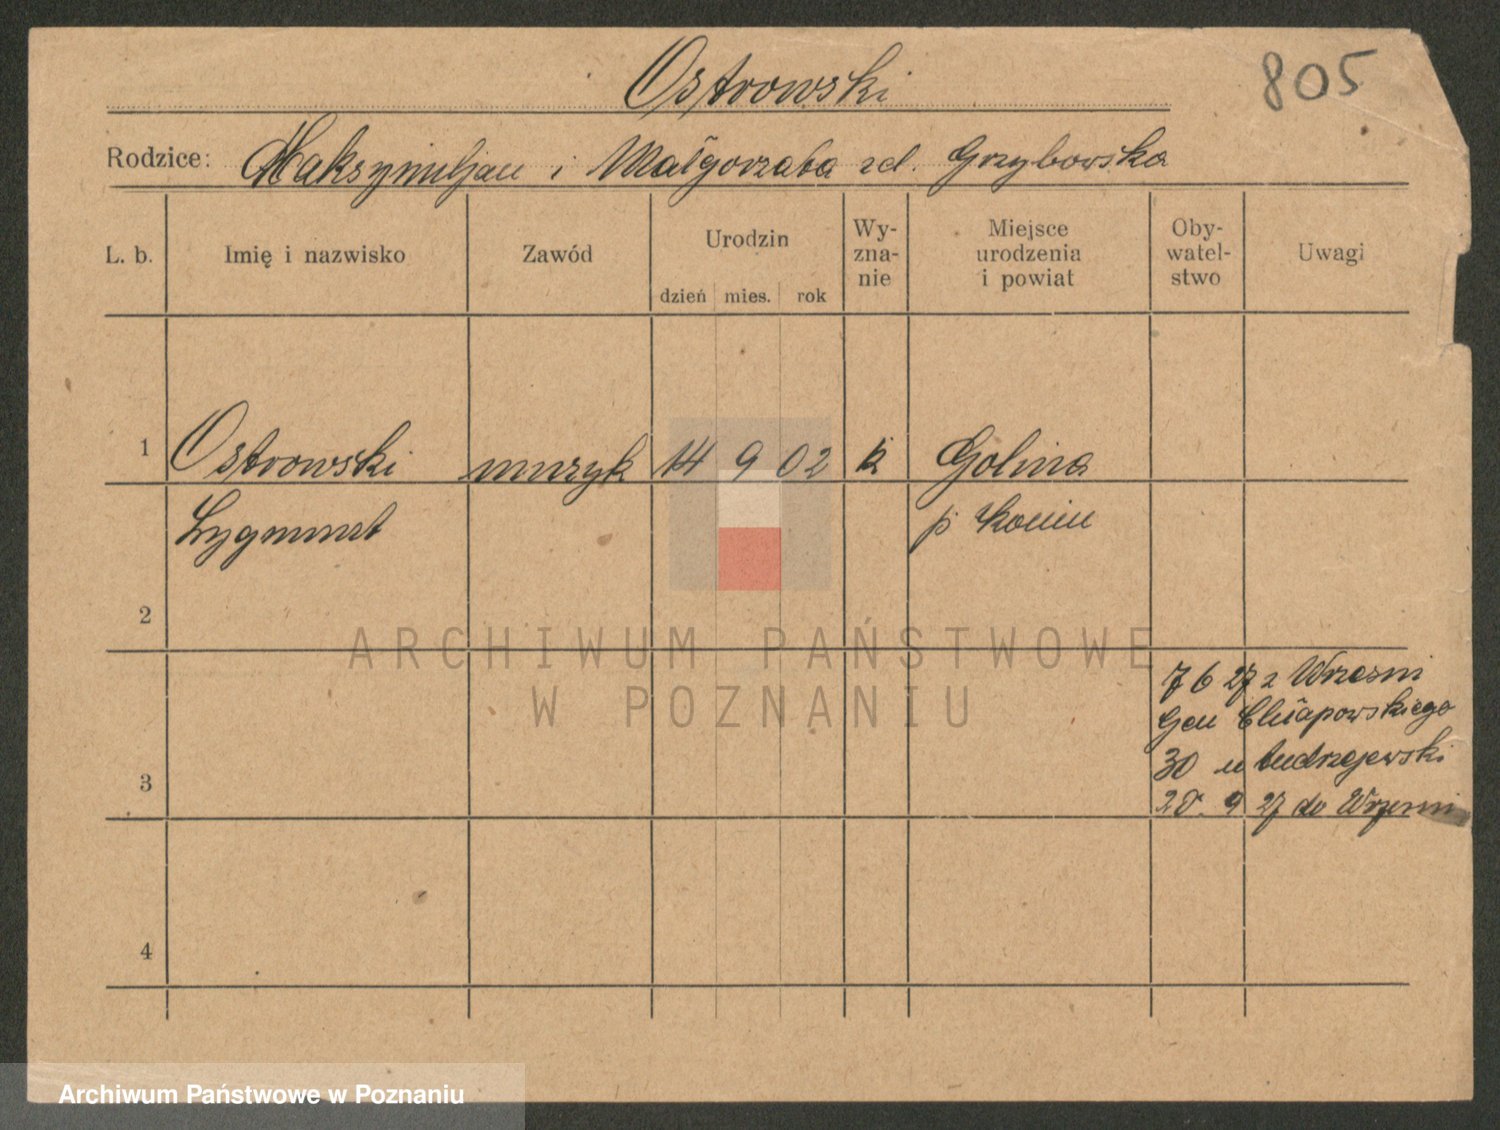 Ostrowski
805
Rodzice: Maksymiljan i Małgorzata zd. Grzybowska
L. b.
Imię i nazwisko
Zawód
Urodzin
dzień mies. rok
Wy-
zna-
nie
Miejsce
urodzenia
i powiat
Oby-
watel-
stwo
Uwagi
1 Ostrowski muzyk 14 9 02 k Golina
Zygmunt p Konin
2
7 6 27 z Wrześni
Gen Chłapowskiego
30 u Andrzejewski
3
9 27 do Wrześni
4
ARCHIWUM PAŃSTWOWE
W POZNANIU
Archiwum Państwowe w Poznaniu